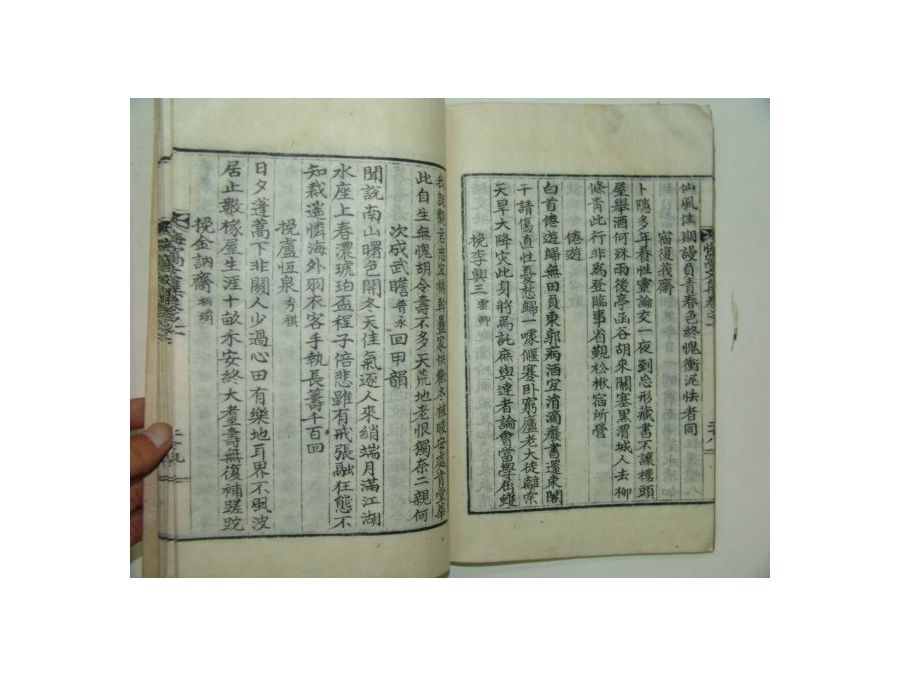 仙風佳期謾負青春色終愧衡泥怯者同
宿復我齋
卜隱多年養性靈論交一夜到忘形藏書不讓樓頭
屋舉酒何妹雨後亭函谷胡來關塞黑渭城人去柳
條青此行非爲登臨事省覲松楸宿所營
倦遊
白首倦遊歸無田負東郭病酒宜消滴癈書還東閣
干請傷直性憂愁歸一噱偃塞臥窮廬老大徒離索
天旱大降灾此身將焉託庶與達者論會當學屈蠖
挽李興三 雲卿
此自生無愧胡令壽不多天荒地老恨獨奈二親何
次成武瞻 普永 回甲韻
聞說南山曙色開冬天佳氣逐人來綃端月滿江湖
水座上春濃琥珀盃程子倍悲雖有戒張融狂態不
知裁遙憐海外羽衣客手執長籌千百回
挽盧恆泉 秀祺
日夕蓬蒿下非關人少過心田有樂地耳界不風波
居止數椽屋生涯十畝禾安終大耋壽無復補蹉跎
挽金訥齋